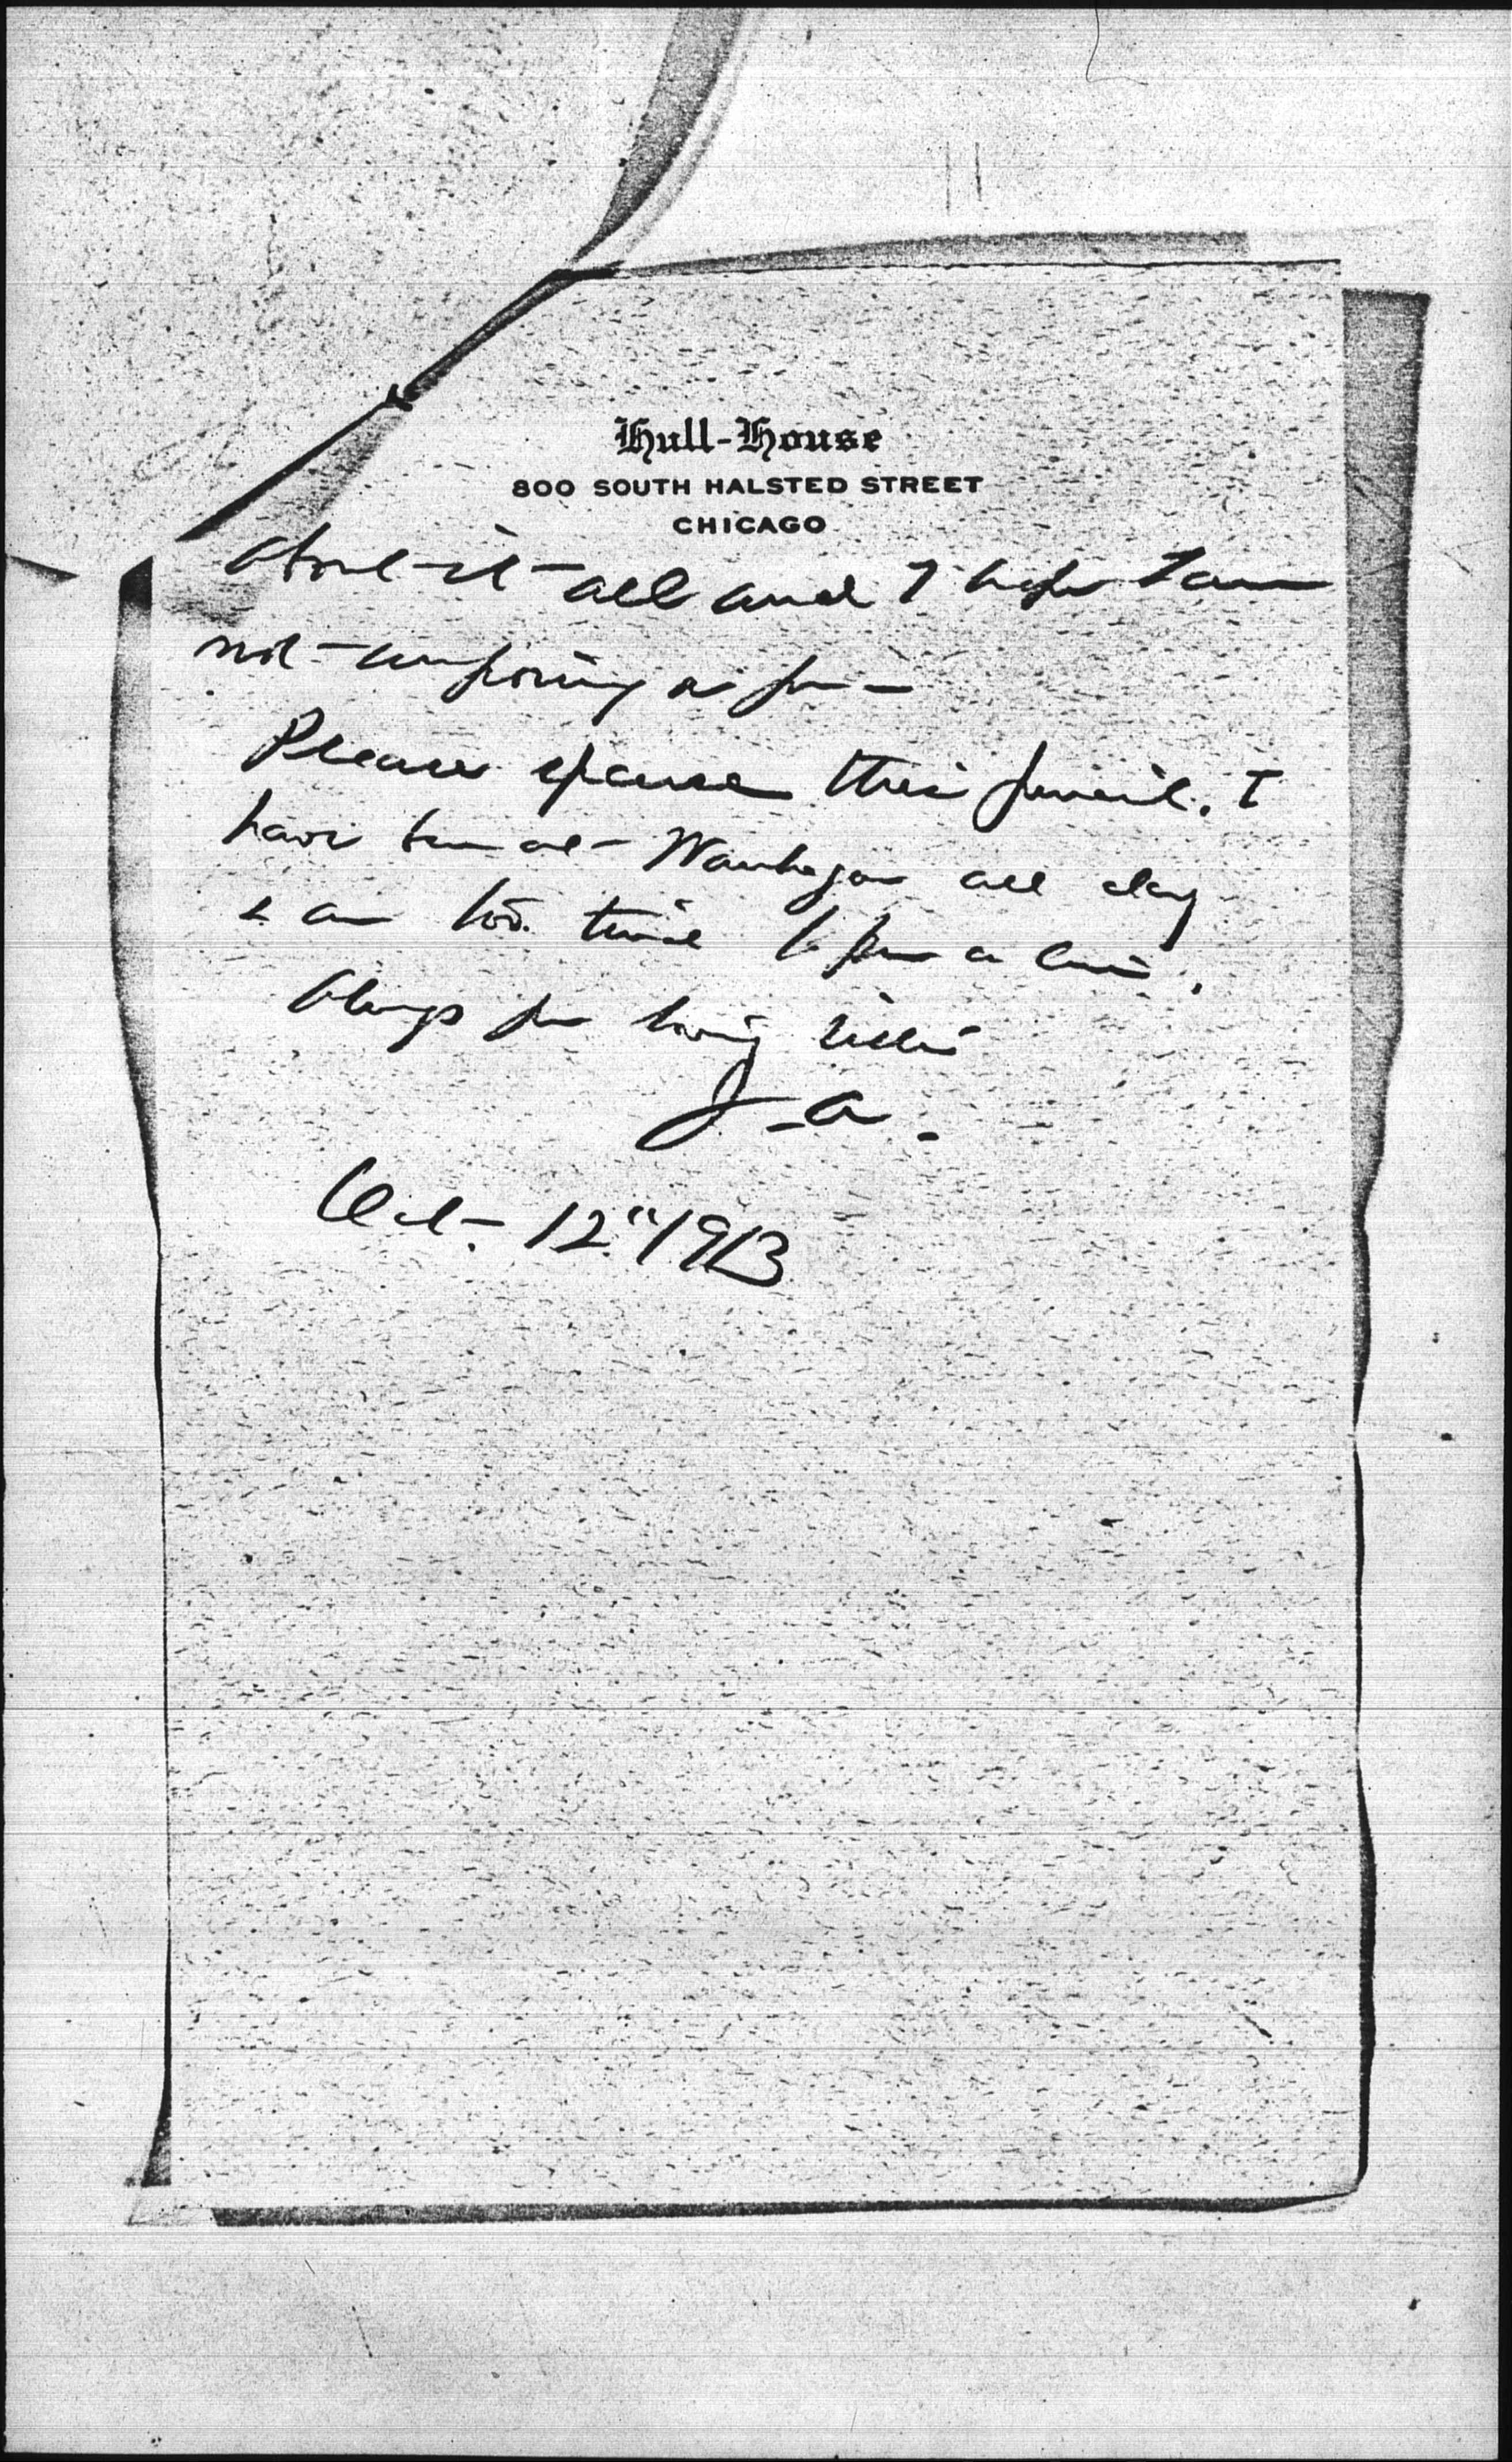 Hull-House
800 SOUTH HALSTED STREET
CHICAGO
about it all and I hope I am
not imposing on you —
Please excuse this pencil. I
have been at Waukegan all day
& am too tired to
Always your loving sister
J. A.
Oct. 12" 1913